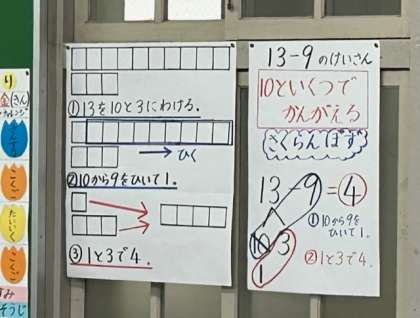 り
金(きん)
チャレンジ
こくご
たいいく
こくご
すみ
そうじ
①13を10と3にわける。
→ひく
②10から9をひいて1。
③1と3で4。
13-9のけいさん
10といくつで
かんがえる
さくらんぼず
13-9=4
①10から9を
ひいて1。
10 3
②1と3で4。
1